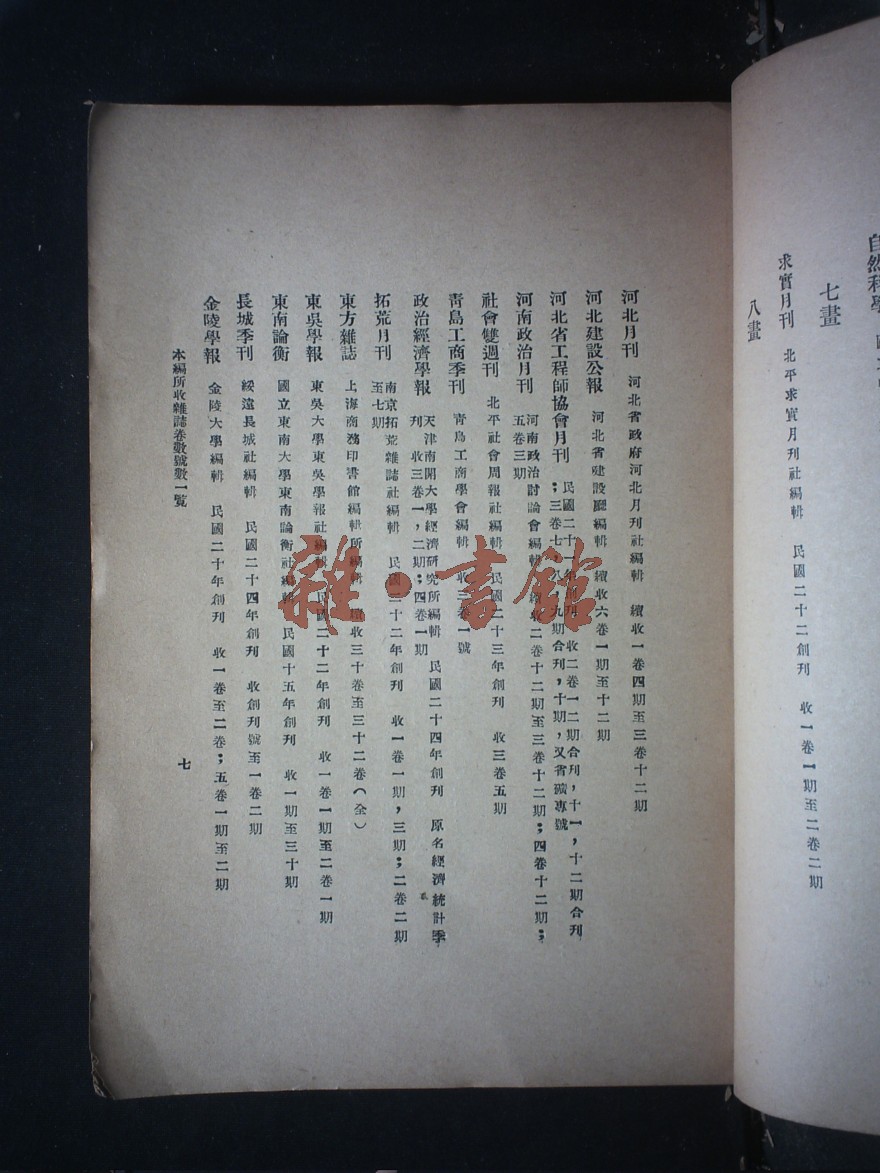 七畫
求實月刊 北平求實月刊社編輯 民國二十二創刊 收一卷一期至二卷二期
八畫
河北月刊 河北省政府河北月刊社編輯 續收一卷四期至三卷十二期
河北建設公報 河北省建設廳編輯 續收六卷一期至十二期
河北省工程師協會月刊 民國二十一年創刊 收二卷一二期合刊,十一,十二期合刊
;三卷七,八,九期合刊,十期,又省礦專號
河南政治月刊 河南政治討論會編輯 續收二卷十二期至三卷十二期;四卷十二期;
五卷三期
社會雙週刊 北平社會周報社編輯 民國二十三年創刊 收三卷五期
青島工商季刊 青島工商學會編輯 收三卷一號
政治經濟學報 天津南開大學經濟研究所編輯 民國二十四年創刊 原名經濟統計季
刊 收三卷一,二期;四卷一期
拓荒月刊 南京拓荒雜誌社編輯 民國二十二年創刊 收一卷一期,三期;二卷二期
至七期
東方雜誌 上海商務印書館編輯所編輯 續收三十卷至三十二卷(全)
東吳學報 東吳大學東吳學報社編輯 民國二十二年創刊 收一卷一期至二卷一期
東南論衡 國立東南大學東南論衡社編輯 民國十五年創刊 收一期至三十期
長城季刊 綏遠長城社編輯 民國二十四年創刊 收創刊號至一卷二期
金陵學報 金陵大學編輯 民國二十年創刊 收一卷至二卷;五卷一期至二期
本編所收雜誌卷數號數一覽 七
雜·書館